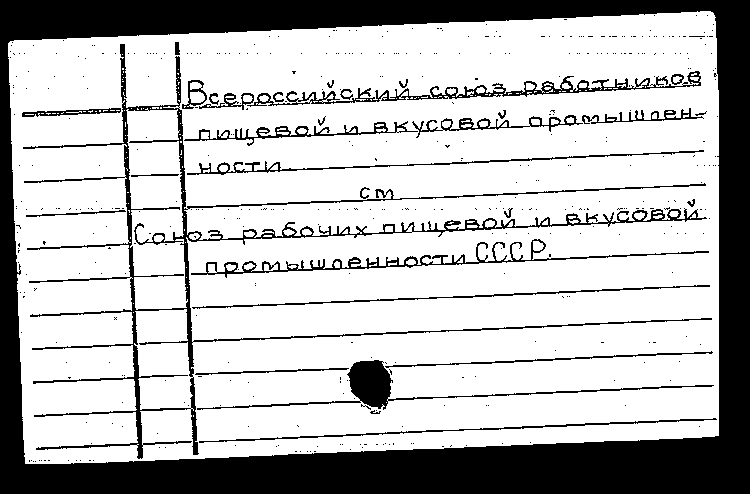 Всероссийский союз работников
пищевой и вкусовой промышлен-
ности
см
Союз рабочих пищевой и вкусовой
промышленности СССР.